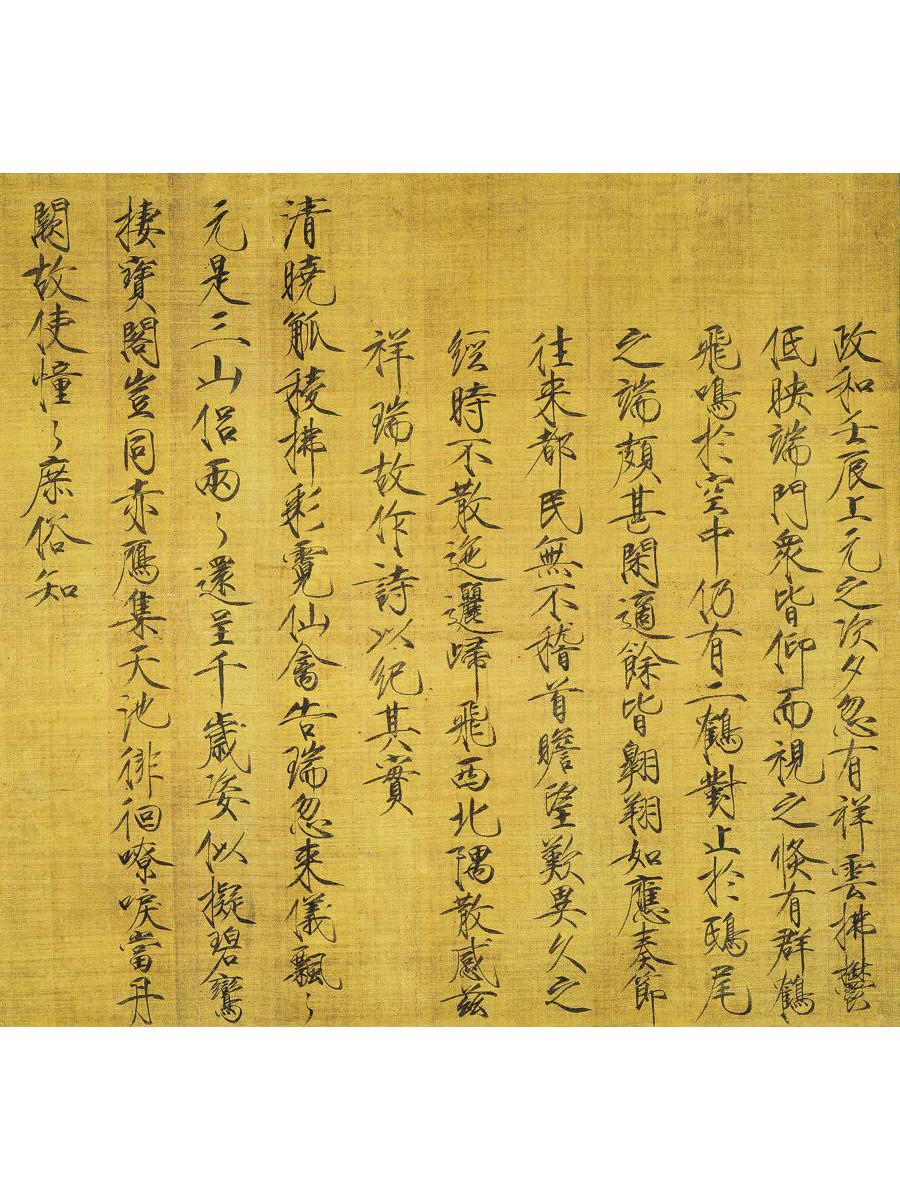 政和壬辰上元之次夕忽有祥雲拂鬱
低映端門衆皆仰而視之倐有群鶴
飛鳴於空中仍有二鶴對止於鴟尾
之端頗甚閑適餘皆翺翔如應奏節
往来都民無不稽首瞻望歎異久之
經時不散迤邐歸飛西北隅散感兹
祥瑞故作詩以紀其實
清曉觚稜拂彩霓仙禽告瑞忽来儀飄〻
元是三山侣兩〻還呈千歲姿似擬碧鸞
棲寶閣豈同赤鴈集天池徘徊嘹唳當丹
闕故使憧〻庶俗知